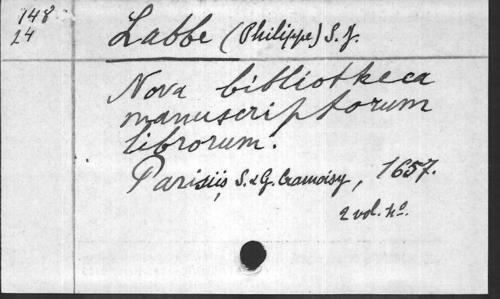 148
24
Labbe (Philippe) S. J.
Nova bibliotheca
manuscriptorum
librorum.
Parisiis, S. & G. Cramoisy, 1657.
2 vol. 4º.